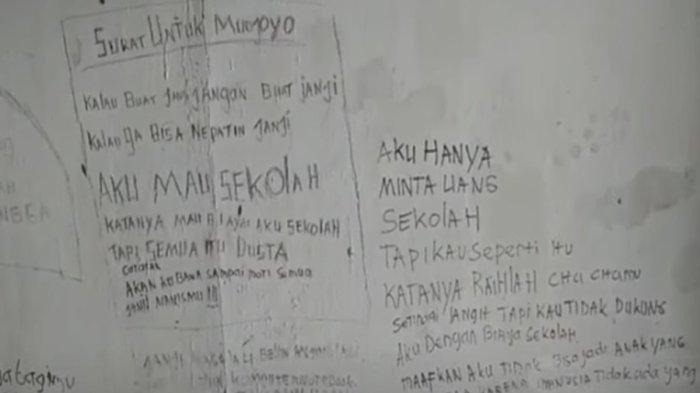 SURAT UNTUK MULYOYO
KALAU BUAT JANJI JANGAN BUAT JANJI
KALAU GA BISA NEPATIN JANJI
AKU MAU SEKOLAH
KATANYA MAU BIAYAI AKU SEKOLAH
TAPI SEMUA ITU DUSTA
Catatan
AKAN KU BAWA SAMPAI MATI SEMUA
JANJI MANISMU !!!
AKU HANYA
MINTA UANG
SEKOLAH
TAPI KAU SEPERTI ITU
KATANYA RAIHLAH CITA CITAMU
SETINGGI LANGIT TAPI KAU TIDAK DUKUNG
AKU DENGAN BIAYA SEKOLAH
MAAFKAN AKU TIDAK BISA JADI ANAK YANG
KARENA MANUSIA TIDAK ADA YANG